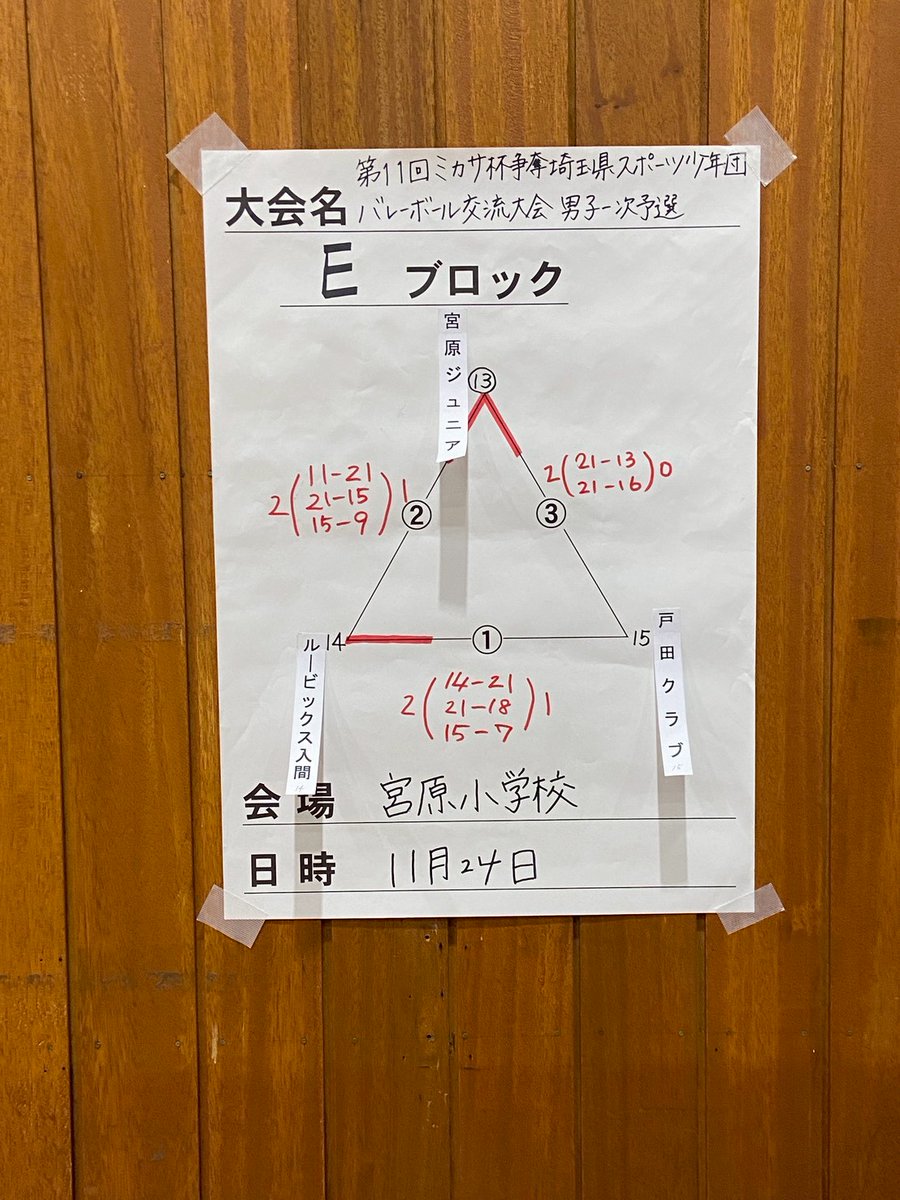 大会名 第11回ミカサ杯争奪埼玉県スポーツ少年団
バレーボール交流大会 男子一次予選
E ブロック
宮原ジュニア
13
2(11-21 21-15 15-9)1
②
2(21-13 21-16)0
③
14
ルービックス入間
14
①
15
戸田クラブ
15
2(14-21 21-18 15-7)1
会場 宮原小学校
日時 11月24日